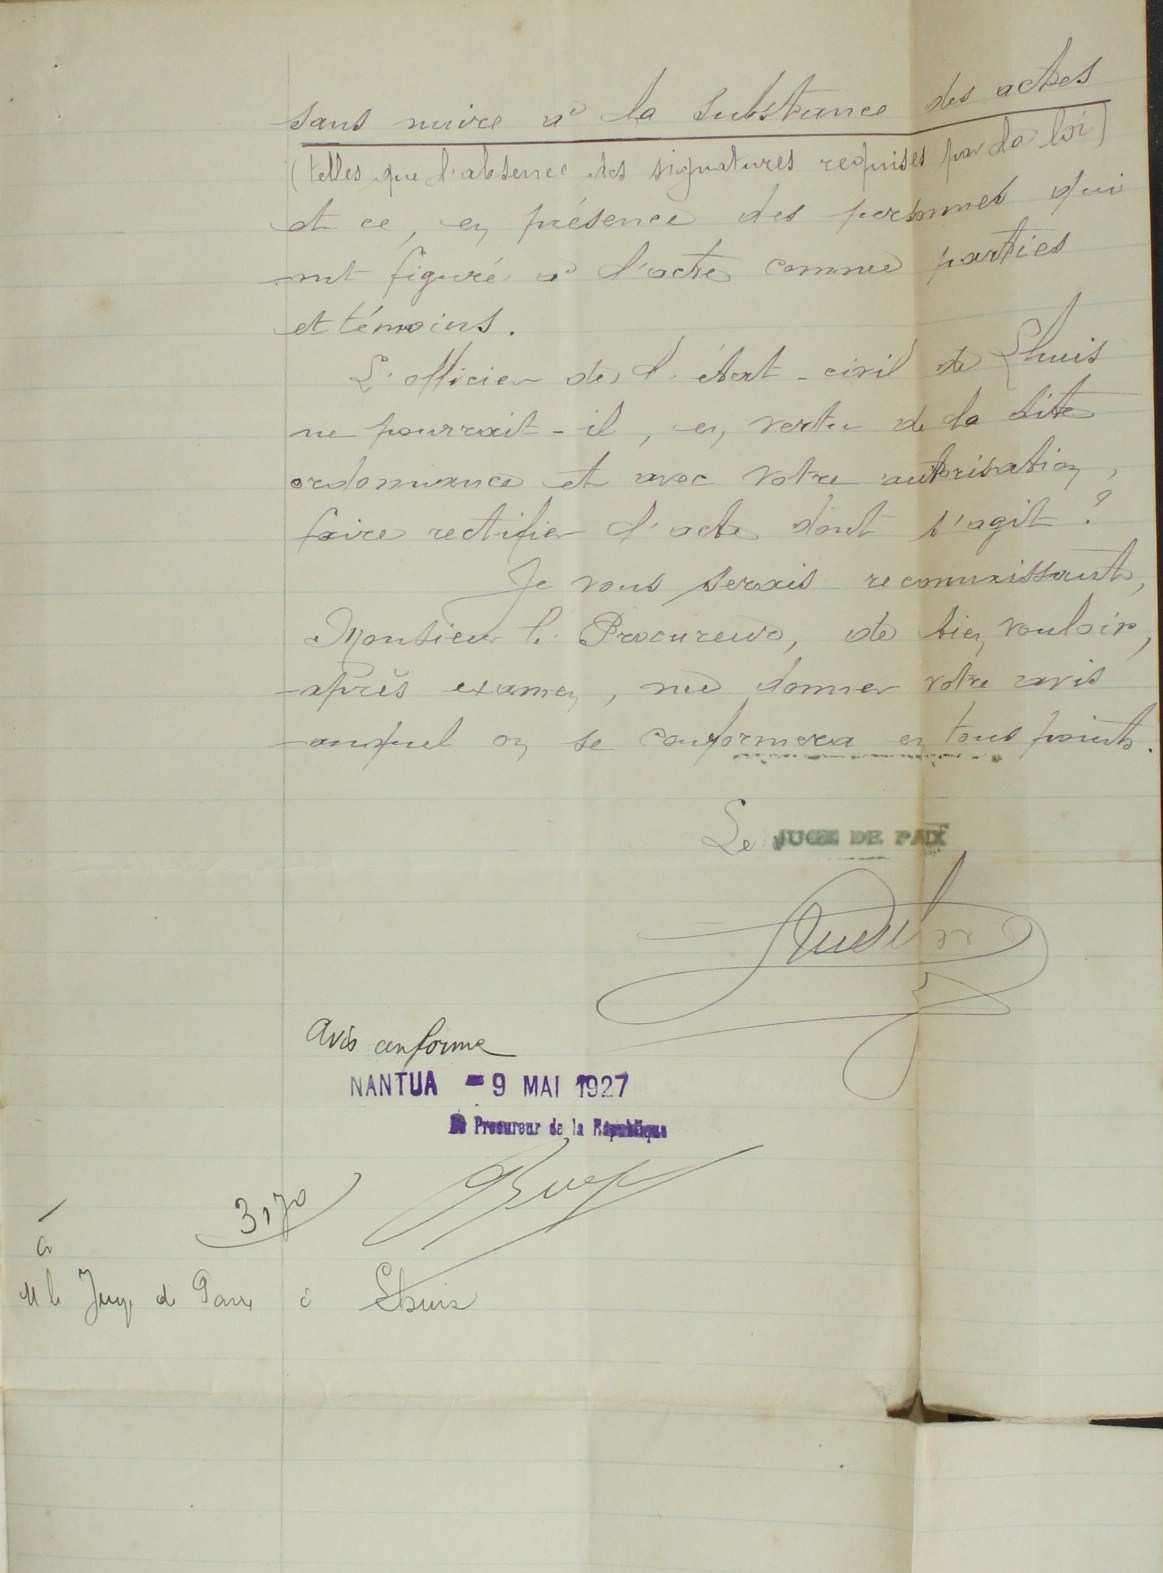 sans nuire à la substance des actes
(telles que l'absence des signatures requises par la loi)
et ce, en présence des personnes qui
ont figuré à l'acte comme parties
et témoins.
L'officier de l'état-civil de Lhuis
ne pourrait-il, en vertu de la dite
ordonnance et avec votre autorisation,
faire rectifier l'acte dont s'agit ?
Je vous serais reconnaissant,
Monsieur le Procureur, de bien vouloir,
après examen, me donner votre avis
auquel on se conformera en tous points.
Le JUGE DE PAIX
Avis conforme
NANTUA - 9 MAI 1927
Le Procureur de la République
à
M le Juge de Paix à Lhuis